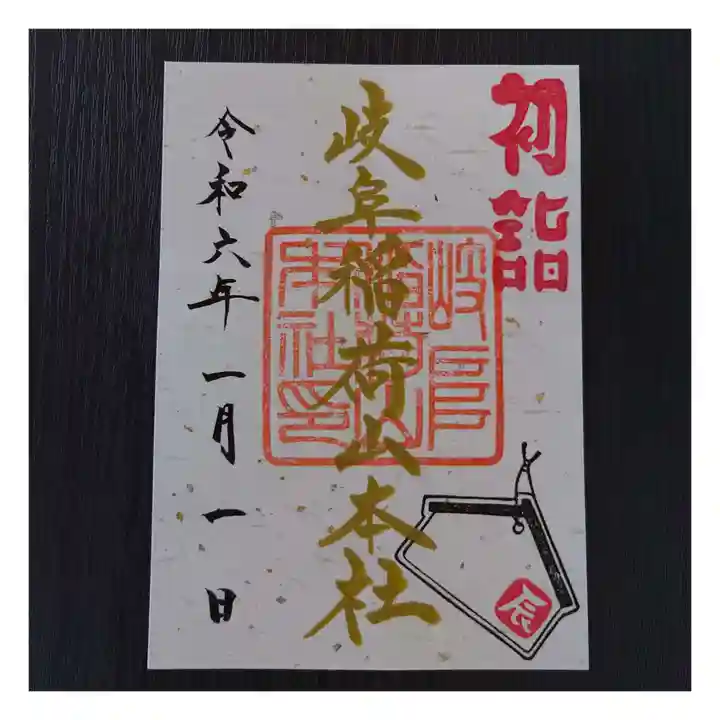 初詣
岐阜稲荷山本社
岐阜稲荷山本社印
辰
令和六年一月一日